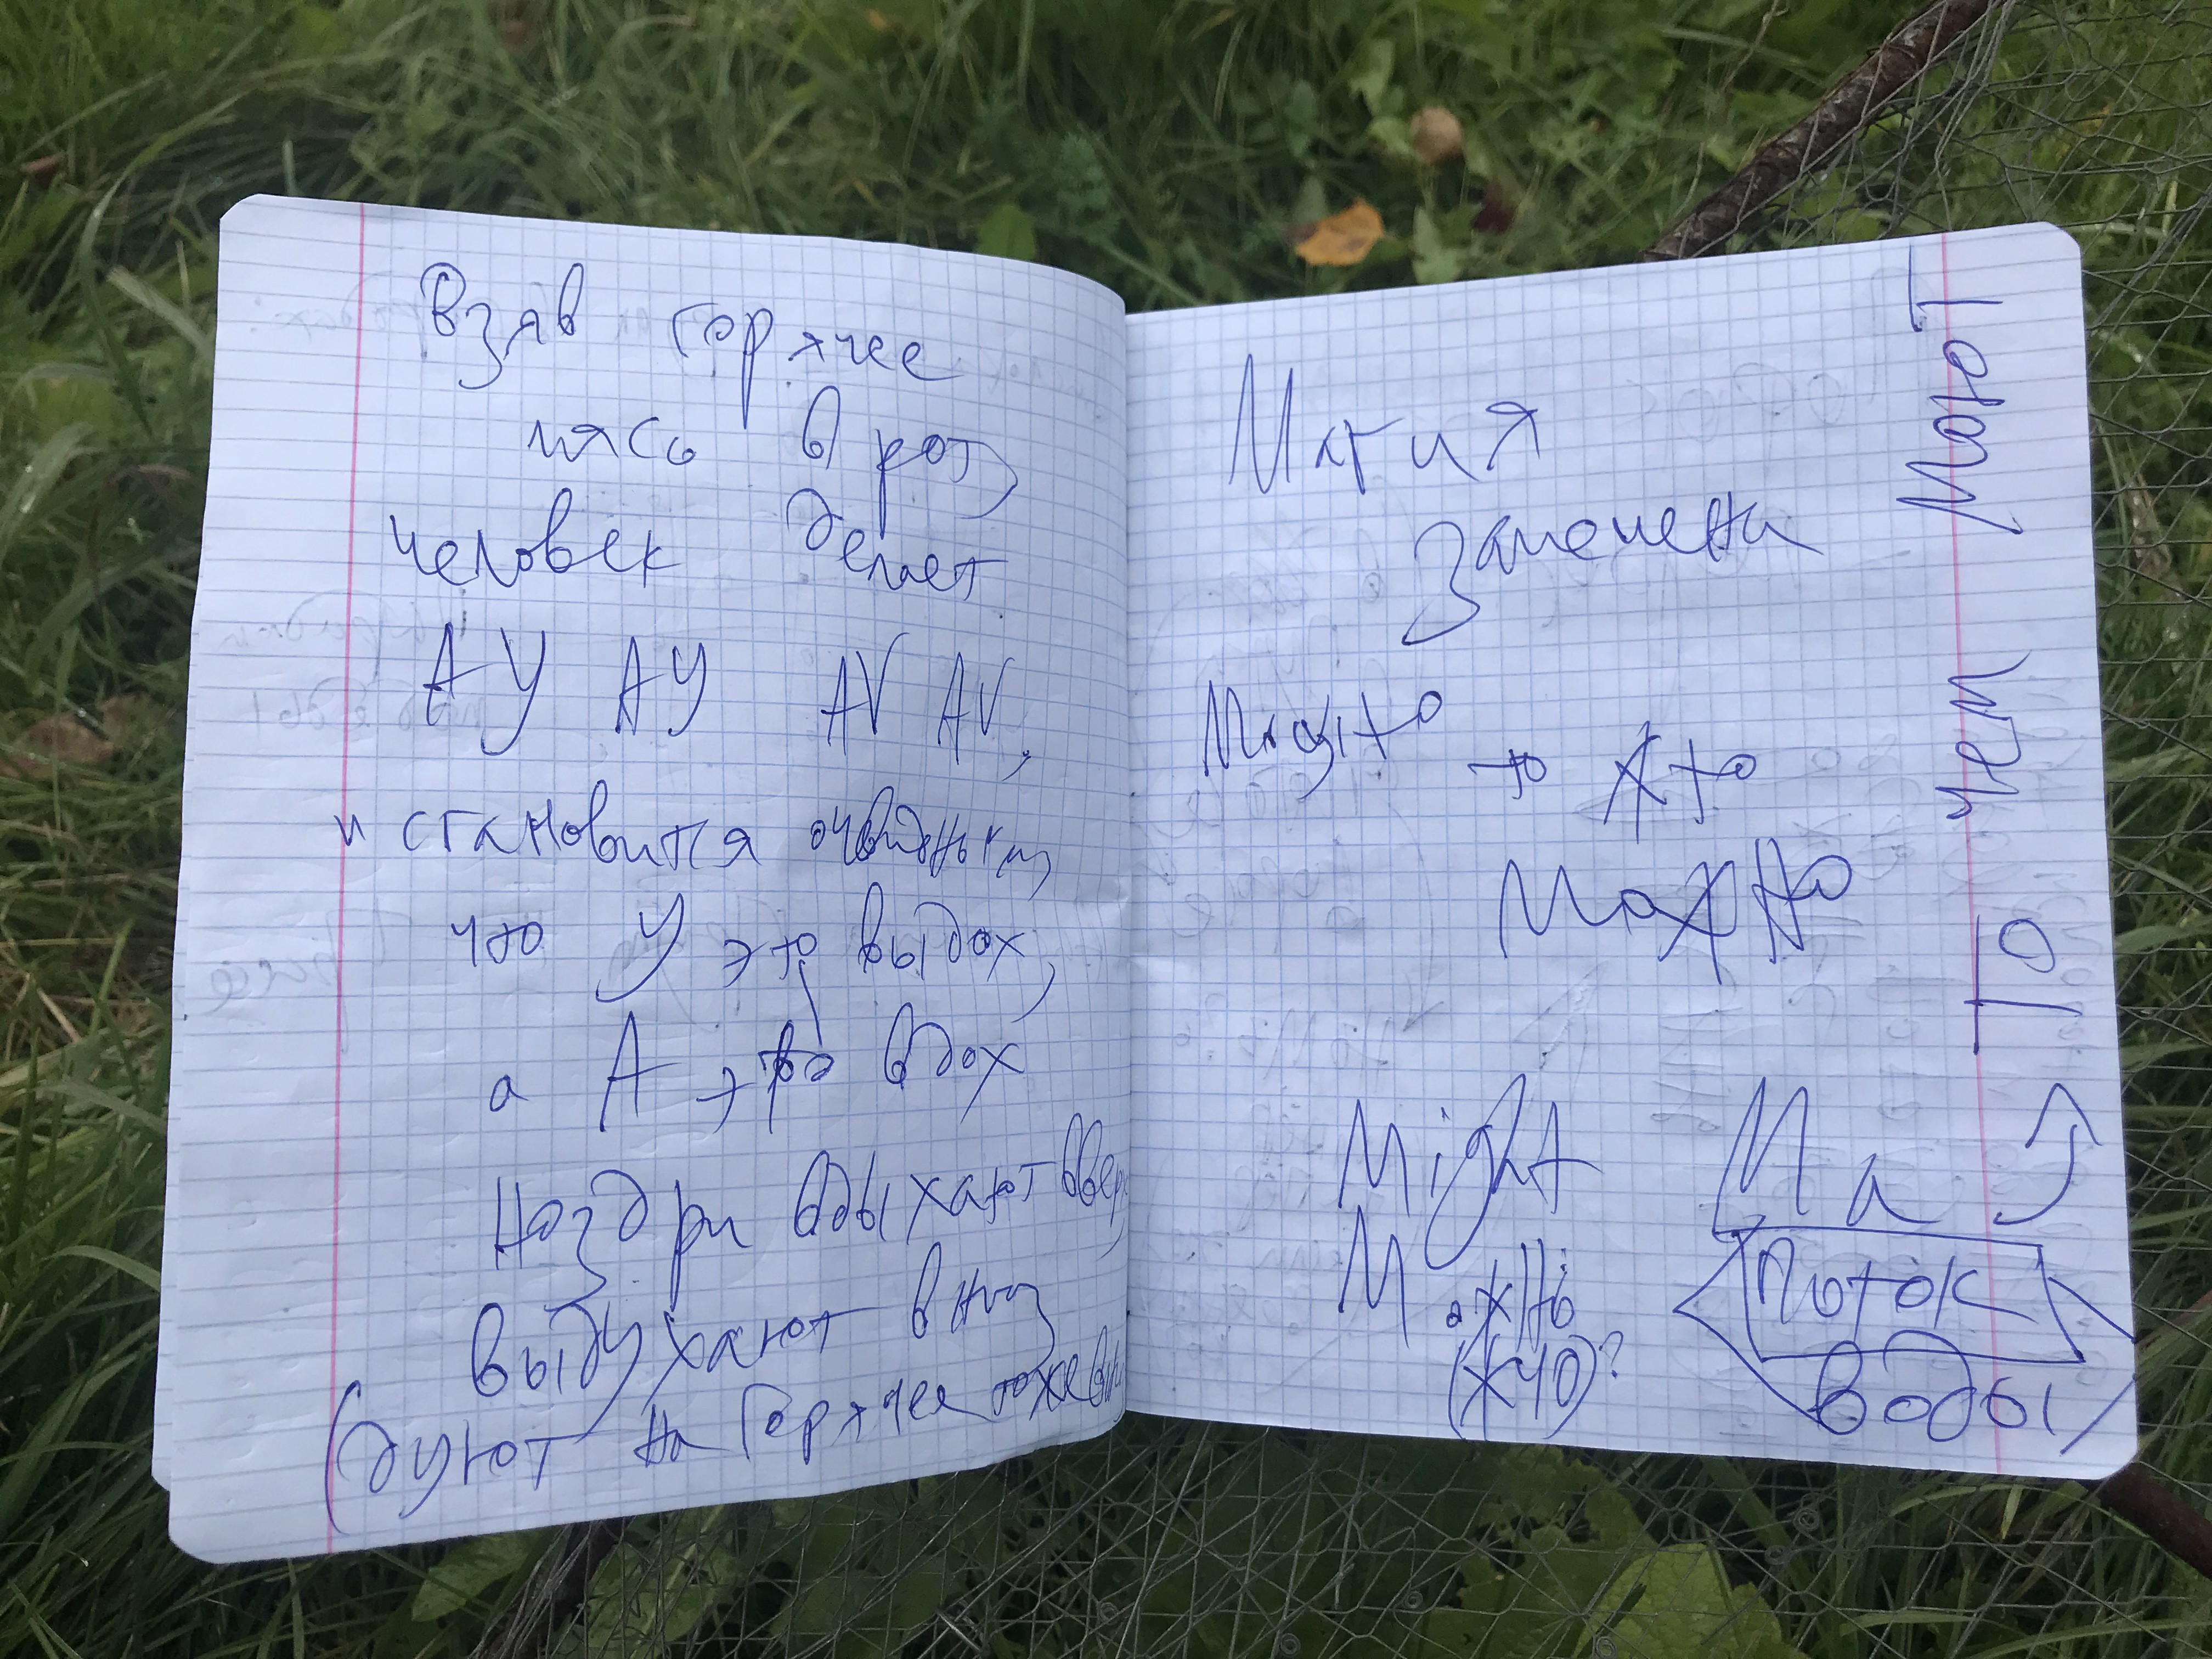 Взяв горячее
мясо в рот
человек делает
АУ АУ AV AV,
и становится очевидным,
что У это выдох,
а А это вдох
Ноздри вдыхают вверх,
выдухают вниз
(дуют на горячее тоже
Магия
замечена
то Кто
МожНо
Might
Ма
М ожНо
(жчо)?
Поток
воды
То чем моют